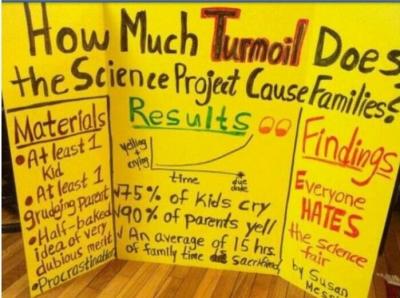 How Much Turmoil Does
the Science Project Cause Families?
Materials
• At least 1
Kid
• At least 1
grudging parent
• Half-baked
idea of very
dubious merit
• Procrastination
Results
yelling
+
crying
time
due
date
√ 75% of Kids cry
√ 90% of parents yell
√ An average of 15 hrs.
of family time sacrificed
Findings
Everyone
HATES
the science
fair
by Susan